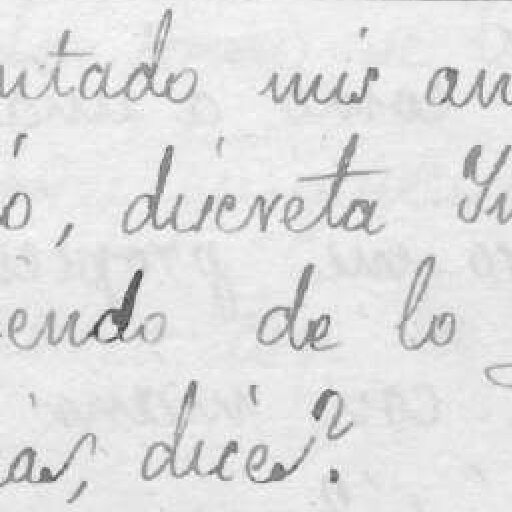 ntado mis an
ó, discreta Yn
endo de lo
ias, dices?